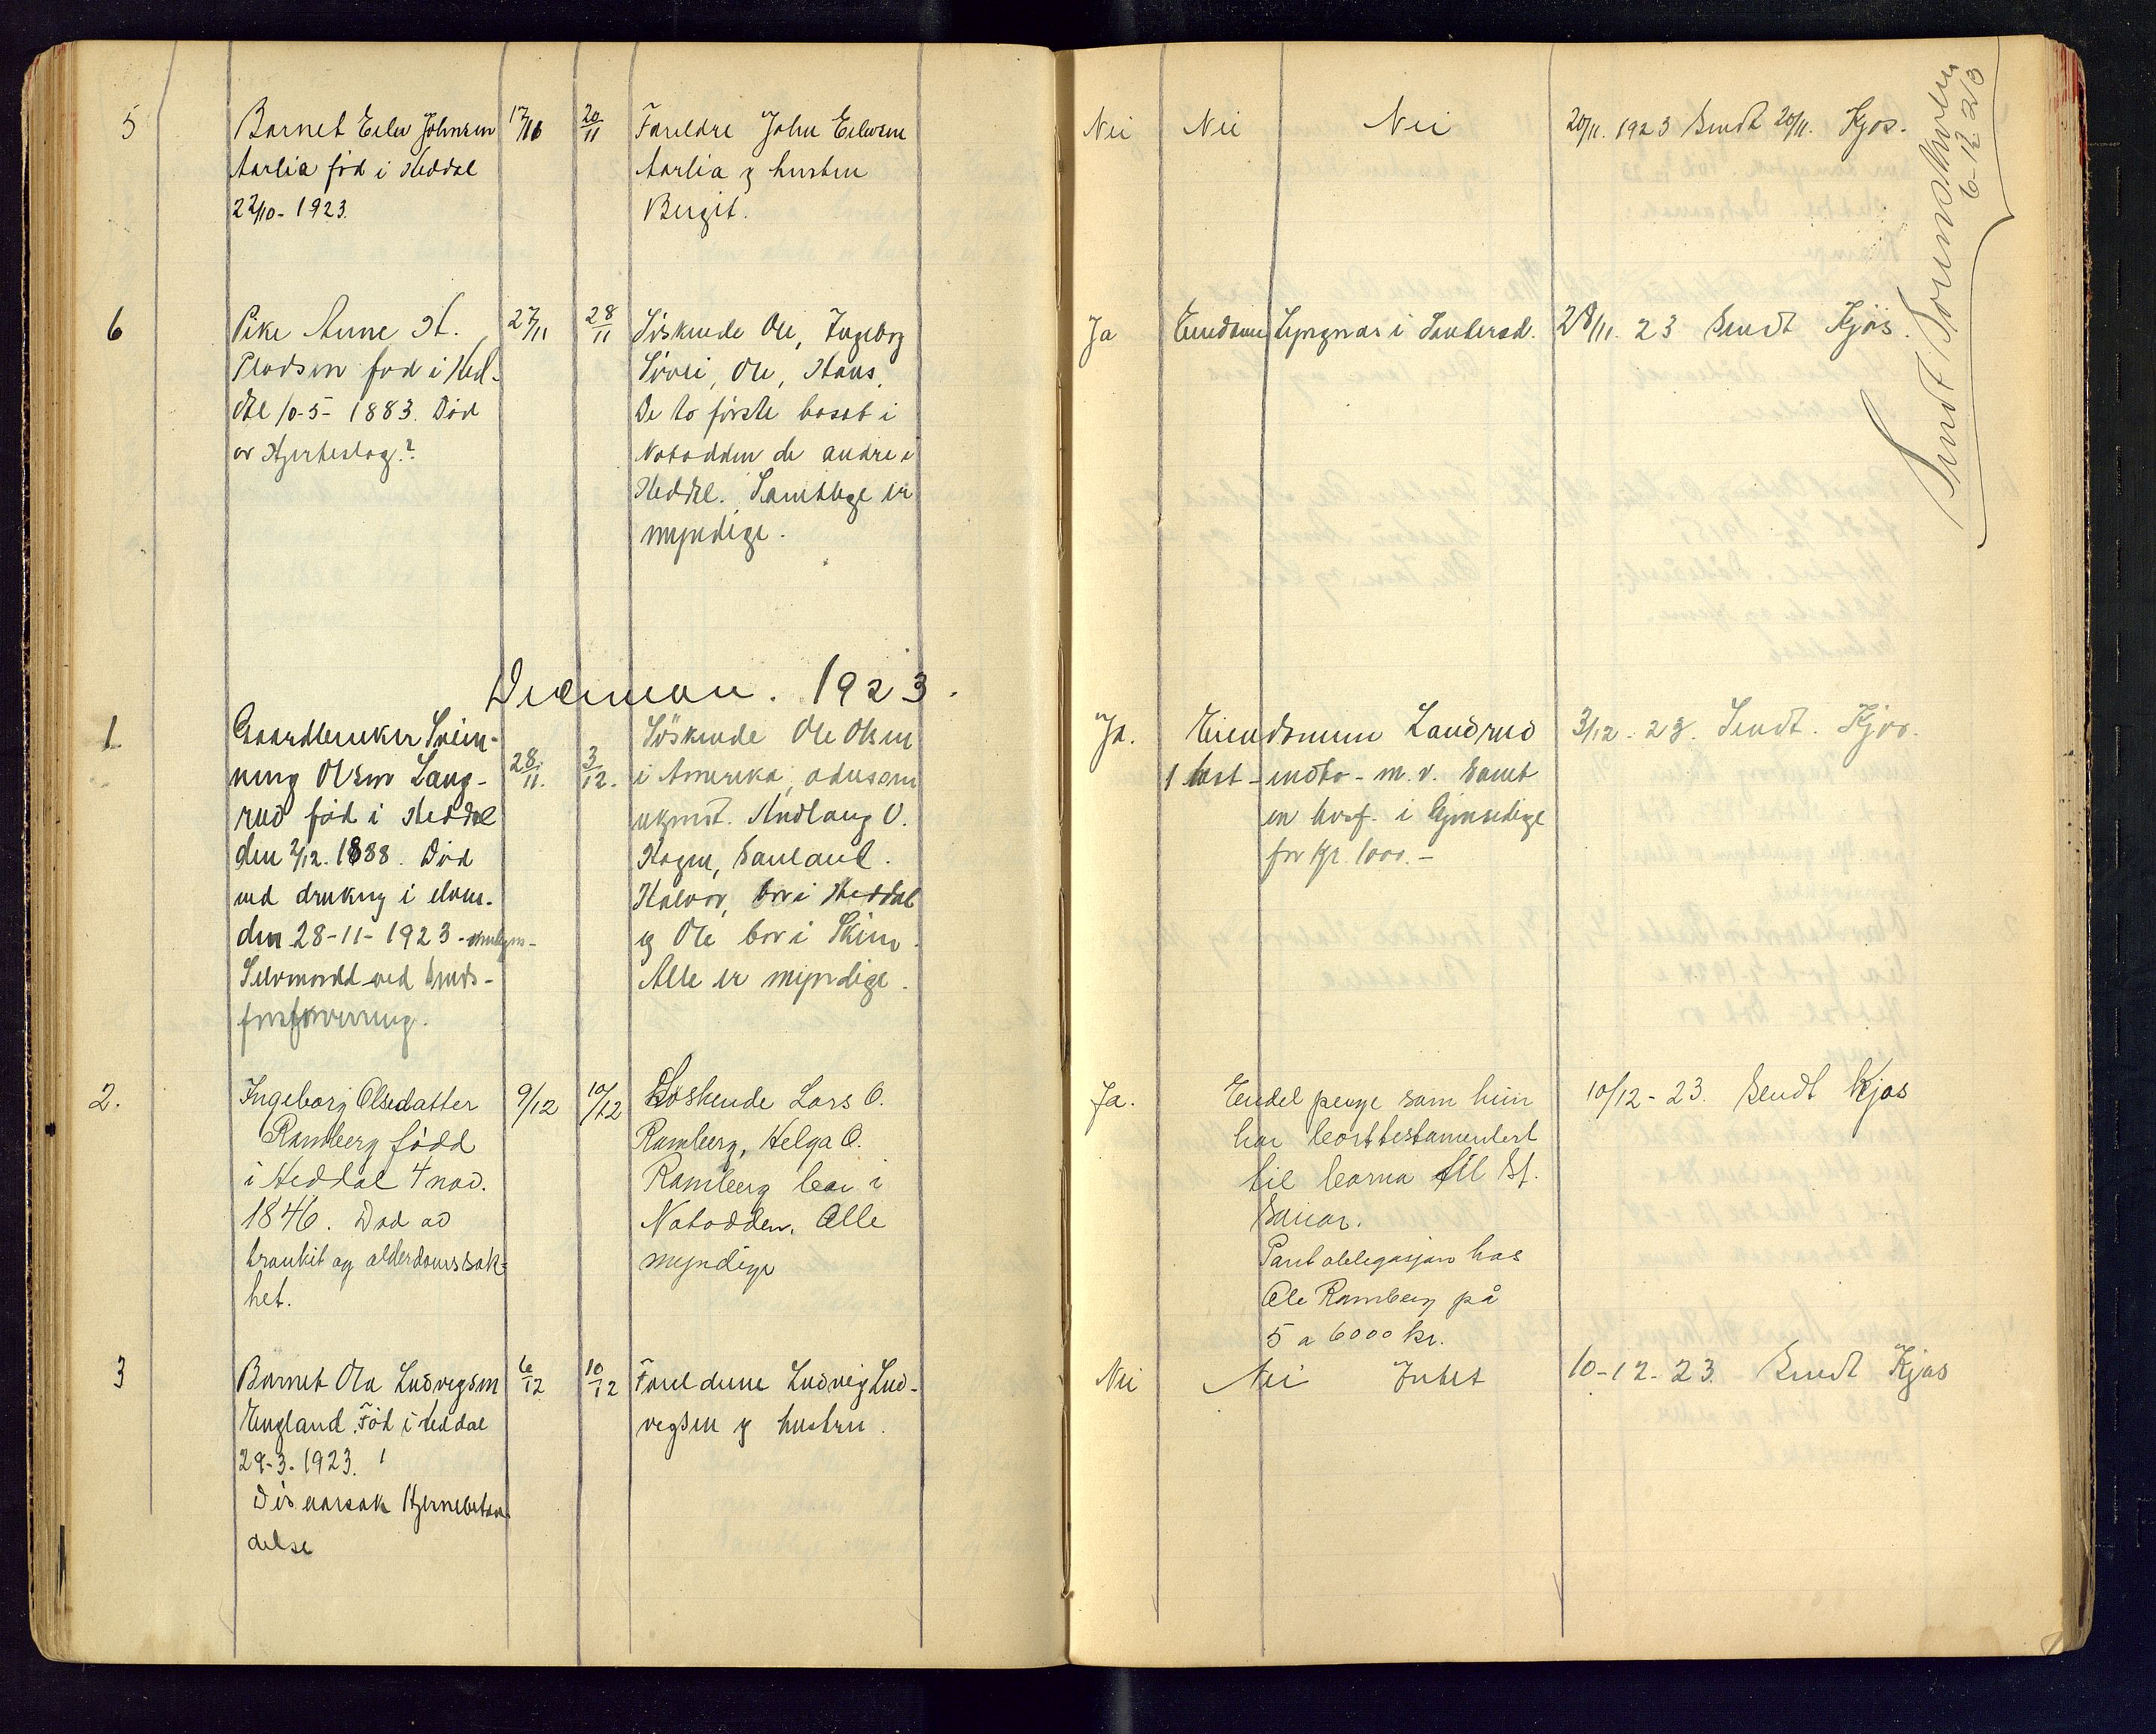 5 Barnet Eilev Johnsen 17/11 20/11 Foreldre John Eilevsen Nei Nei Nei 20/11. 1923 Sendt 20/11. Kjos.
Aarlia föd i Heddal Aarlia og hustru
22/10- 1923. Bergit.
6 Pike Anne H. 27/11 28/11 Söskende Ole, Ingeborg Ja Eiendom i 28/11. 23 Sendt Kjos.
födt i Hed-
dal 10-5- 1883. Död Ole, Hans.
av Hjerteslag? De to förste bosat i
Notodden de andre i
Heddal. Samtlege er
myndige.
Sendt Sorenskriveren
6-12-23
1923.
1. Gaardbruker Svein- 28/11. 3/12. Söskende Ole Olsen Ja. Eiendommen Landrud 3/12-23. Sendt. Kjos.
ung Olsen Lang- i Amerika, adressen 1 hest - indbo - m.v. samt
rud föd i Heddal ukjent. Andlaug O. en livsf. i Gjensidige
den 2/12. 1888. Död Hagen, Sauland. for kr. 1000.-
ved drukning i elven. Halvor, bor i Heddal
den 28-11-1923- og Ole bor i Skien.
Selvmordd ved sinds- Alle er myndige.
forvirring.
2. Ingeborg Olsedatter 9/12 10/12 Söskende Lars O. Ja. Endel penge som hun 10/12-23. Sendt Kjos
Ramberg född Ramberg, Helga O. har borttestamentert
i Heddal 4 nov. Ramberg bor i til borna til Sf.
1846. Död av Notodden. Alle
brankit og alderdomssvak- myndige Pantobligasjon hos
het. Ole Ramberg på
5 a 6000 kr.
3 Barnet Ola Ludvegsen 6/12 10/12 Foreldrene Ludvig Lud- Nei Nei Intet 10-12-23. Sendt Kjos
England. Föd i Heddal vegsen og hustru.
29-3-1923.
Dödsaarsak Hjernebetæn-
delse